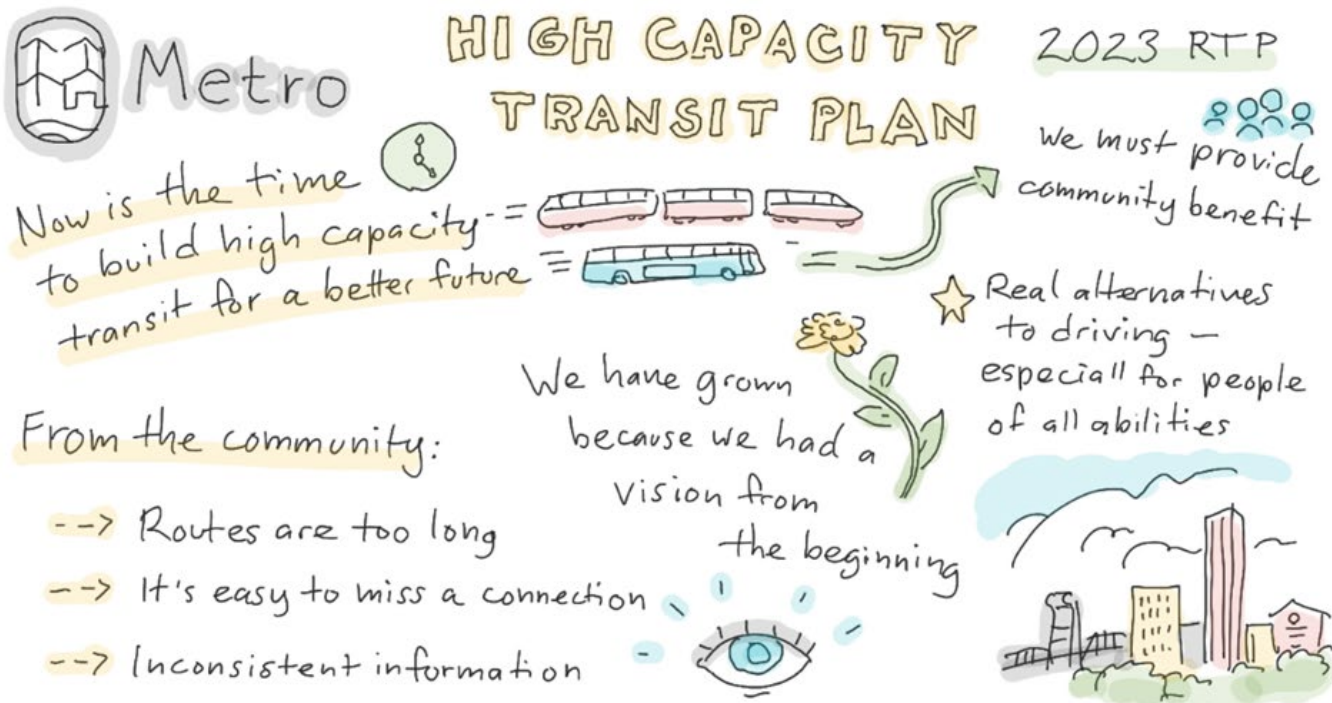 Metro
HIGH CAPACITY
TRANSIT PLAN
2023 RTP
Now is the time
to build high capacity
transit for a better future
we must provide
community benefit
Real alternatives
to driving —
especiall for people
of all abilities
We have grown
because we had a
vision from
the beginning
From the community:
--> Routes are too long
--> It's easy to miss a connection
--> Inconsistent information